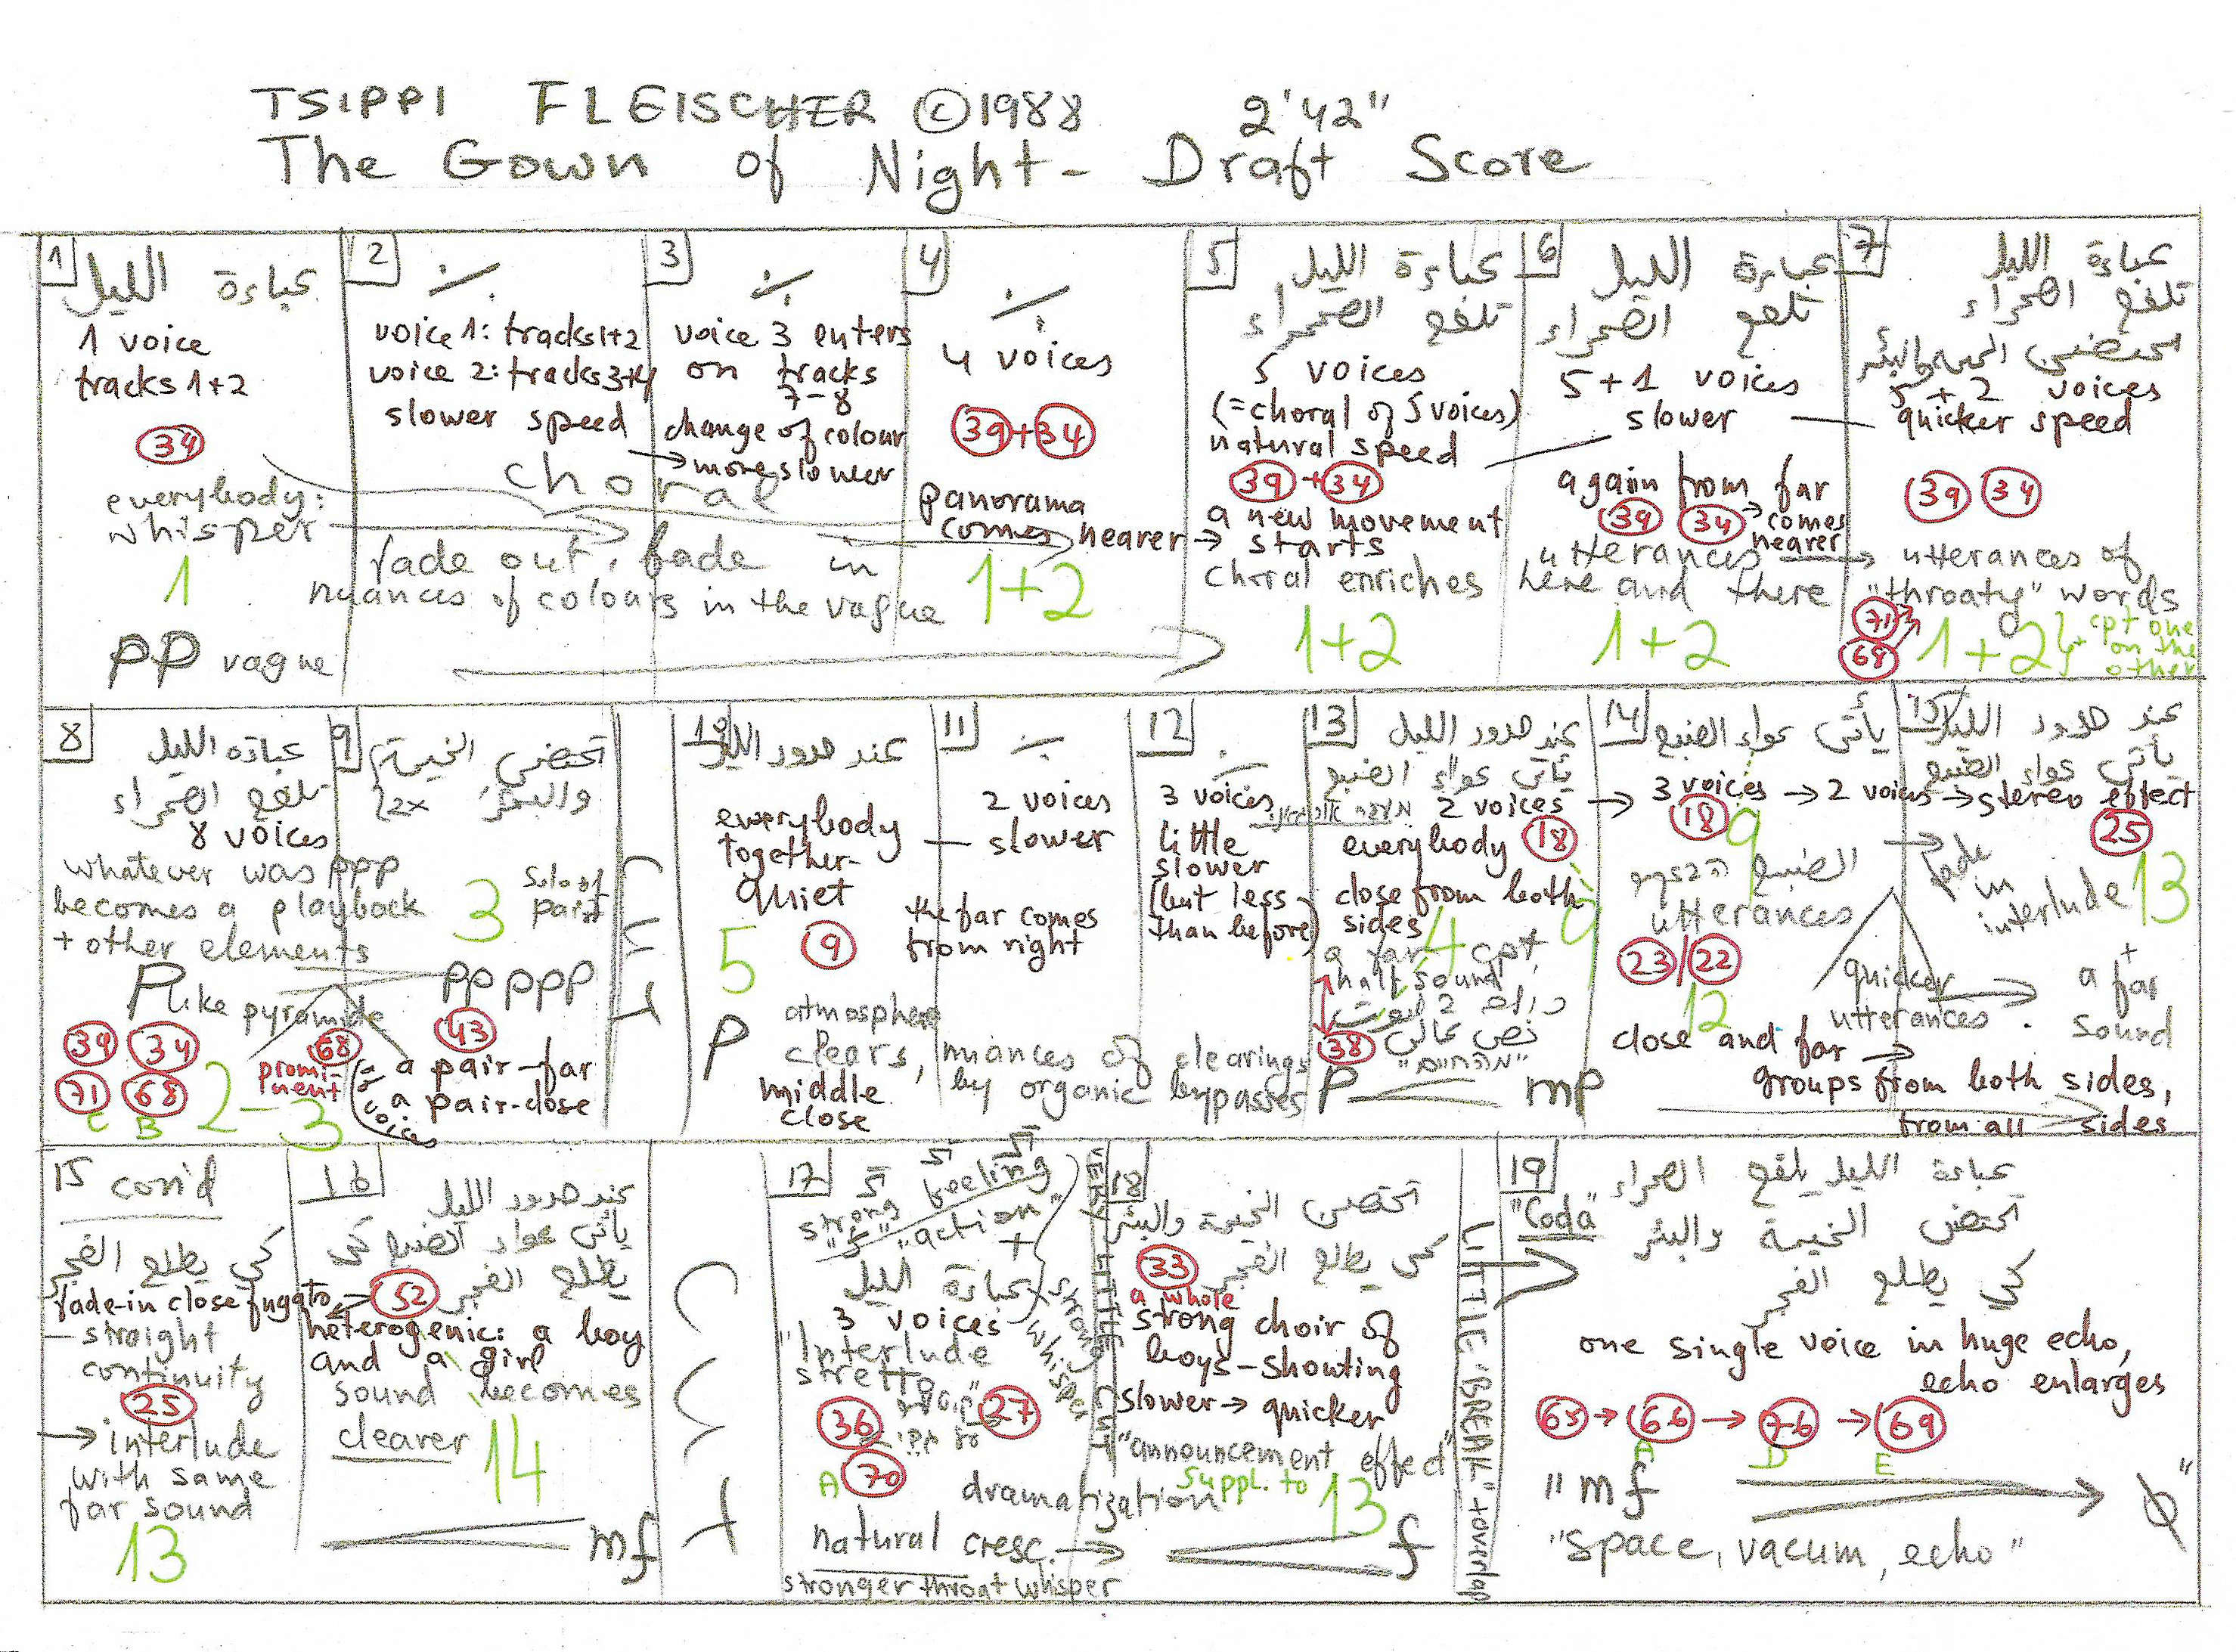 TSIPPI FLEISCHER ©1988 2'42"
The Gown of Night - Draft Score
1
عباءة الليل
1 voice
tracks 1+2
34
everybody:
whisper
1
pp vague
2
voice 1: tracks 1+2
voice 2: tracks 3+4
slower speed
choral
fade out, fade in
nuances of colours in the vague
3
voice 3 enters
on tracks
7-8
change of colour
→ more slower
4
4 voices
39+34
panorama
comes nearer →
1+2
5
عباءة الليل
تلفع الصحراء
5 voices
(=choral of 5 voices)
natural speed
39+34
a new movement
starts
choral enriches
1+2
6
عباءة الليل
تلفع الصحراء
5+1 voices
slower
again from far
39 34 → comes
nearer
utterances
here and there
1+2
7
عباءة الليل
تلفع الصحراء
5+2 voices
quicker speed
39 34
utterances of
"throaty" words
71
68
1+2
cpt one
on the
other
8
عباءة الليل
تلفع الصحراء
8 voices
whatever was ppp
becomes a playback
+ other elements
P like pyramide
39 34
71 68
C B
2-3
68
promi-
nent
9
تحتضن الخيمة
والبئر 2x
3
pp ppp
43
a pair-far
a pair-close
10
عند حدود الليل
everybody
together-
quiet
5
9
P
atmosphere
clears,
middle
close
11
2 voices
slower
the far comes
from right
nuances of clearings
by organic bypasses
12
3 voices
little
slower
(but less
than before)
13
عند حدود الليل
يأتي عواء الضبع
2 voices →
everybody 18
close from both
sides
4 9
a far cpt.
half sound
38
P mp
14
يأتي عواء الضبع
3 voices → 2 voices → stereo effect
18
9
الضبع
utterances
23/22
12
quicker
utterances
close and far →
groups from both sides,
from all sides
15
عند حدود الليل
يأتي عواء الضبع
25
fade
in
interlude 13
+
a far
sound
15 con'd
كي يطلع الفجر
fade-in close fugato
- straight
continuity
25
→ interlude
with same
far sound
13
16
عند حدود الليل
يأتي عواء الضبع كي
يطلع الفجر
52
heterogenic: a boy
and a girl
sound becomes
clearer 14
mf
17
strong feeling
"action"
+
عباءة الليل
3 voices
strong whisper
"Interlude
stretto"
36 27
A 70
dramatization
natural cresc. →
stronger throat whisper
VERY LITTLE CUT
18
تحتضن الخيمة والبئر
كي يطلع الفجر
33
a whole
strong choir of
boys-shouting
slower → quicker
"announcement effect"
suppl. to 13
f
LITTLE "BREAK" + overlap
19
"Coda"
عباءة الليل تلفع الصحراء
تحتضن الخيمة والبئر
كي يطلع الفجر
one single voice in huge echo,
echo enlarges
65 → 66 → 76 → 69
A D E
"mf ϕ"
"space, vacum, echo"